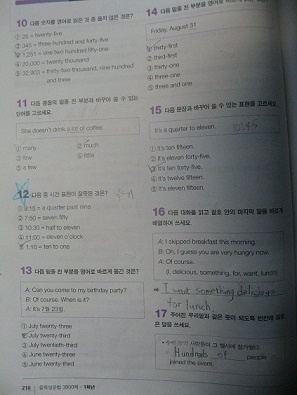 10 다음 숫자를 영어로 읽은 것 중 옳지 않은 것은?
① 25 = twenty-five
② 345 = three hundred and forty-five
③ 1,251 = one two hundred fifty-one
④ 20,000 = twenty thousand
⑤ 32,903 = thirty-two thousand, nine hundred
and three
11 다음 문장의 밑줄 친 부분과 바꾸어 쓸 수 있는
단어를 고르세요.
She doesn't drink a lot of coffee.
① many
② much
③ few
④ a few
⑤ little
12 다음 중 시간 표현이 잘못된 것은?
① 9:15 = a quarter past nine
② 7:50 = seven fifty
③ 10:30 = half to eleven
④ 11:00 = eleven o'clock
⑤ 1:10 = ten to one
13 다음 밑줄 친 부분을 영어로 바르게 옮긴 것은?
A: Can you come to my birthday party?
B: Of course. When is it?
A: It's 7월 23일.
① July twenty-three
② July twenty-third
③ July twentieth-third
④ June twenty-three
⑤ June twenty-third
216
1학년
14 다음 밑줄 친 부분을 영어로 바르게 읽은 것은?
Friday, August 31
① thirty-first
② third-first
③ thirty-one
④ three-one
⑤ three and one
15 다음 문장과 바꾸어 쓸 수 있는 표현을 고르세요.
It's a quarter to eleven.
10:45
① It's ten fifteen.
② It's eleven forty-five.
③ It's ten forty-five.
④ It's twelve fifteen.
⑤ It's eleven fifteen.
16 다음 대화를 읽고 괄호 안의 마지막 말을 바르게
배열하여 쓰세요.
A: I skipped breakfast this morning.
B: Oh, I guess you are very hungry now.
A: Of course.
(I, delicious, something, for, want, lunch)
→ I want something delicious
for lunch
17 주어진 우리말과 같은 뜻이 되도록 빈칸에 알맞
은 말을 쓰세요.
사람들이 그 행사에 참가했다.
→ Hundreds of people
joined the event.